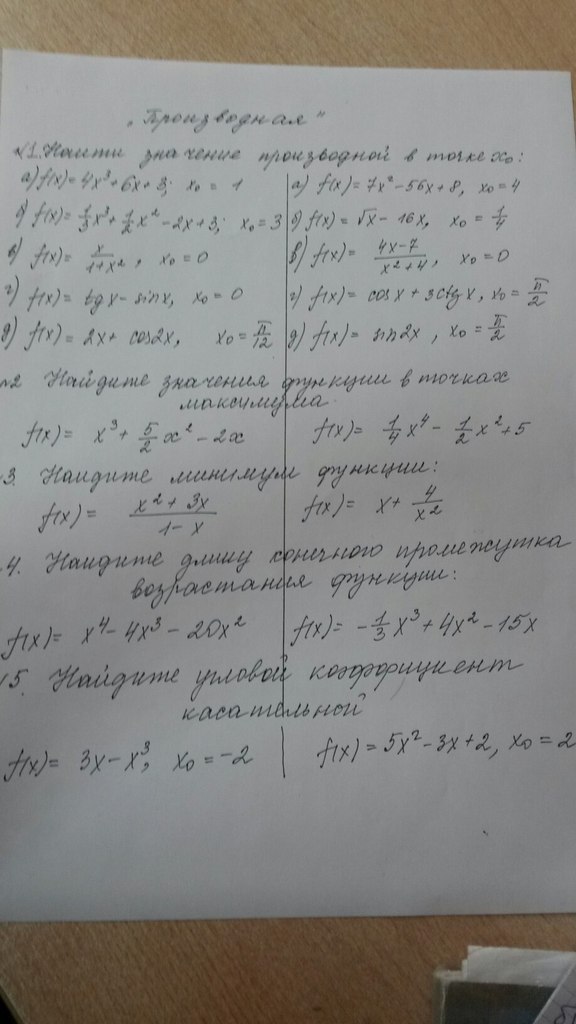 „Производная"
№1. Найти значение производной в точке x₀:
а) f(x) = 4x³ + 6x + 3; x₀ = 1 а) f(x) = 7x² - 56x + 8, x₀ = 4
б) f(x) = 1/3 x³ + 1/2 x² - 2x + 3; x₀ = 3 б) f(x) = √x - 16x, x₀ = 1/4
в) f(x) = x/(1+x²), x₀ = 0 в) f(x) = (4x-7)/(x²+4), x₀ = 0
г) f(x) = tgx - sinx, x₀ = 0 г) f(x) = cosx + 3ctgx, x₀ = π/2
д) f(x) = 2x + cos2x, x₀ = π/12 д) f(x) = sin2x, x₀ = π/2
№2 Найдите значения функции в точках
максимума.
f(x) = x³ + 5/2 x² - 2x f(x) = 1/4 x⁴ - 1/2 x² + 5
3. Найдите минимум функции:
f(x) = (x² + 3x)/(1-x) f(x) = x + 4/x²
4. Найдите длину конечного промежутка
возрастания функции:
f(x) = x⁴ - 4x³ - 20x² f(x) = -1/3 x³ + 4x² - 15x
5. Найдите угловой коэффициент
касательной
f(x) = 3x - x³; x₀ = -2 f(x) = 5x² - 3x + 2, x₀ = 2